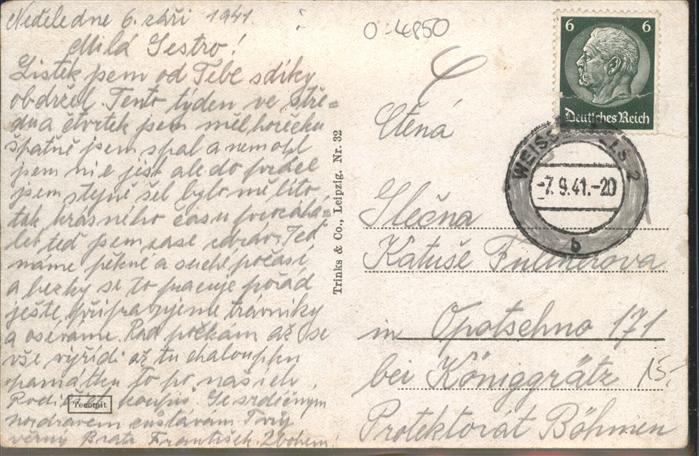 Neděle dne 6. září 1941
Milá Sestro!
Lístek jsem od Tebe s díky
obdržel. Tento týden ve stře=
du a čtvrtek jsem měl horečku
špatně jsem spal a nemohl
jsem nic jíst ale do
jsem stejně šel bylo mě líto
tak krásného času
teď jsem zase zdráv. Teď
máme pěkné a suché počasí
a hezky se to pracuje pořád
ještě připravujeme trávníky
a oséváme. Rad počkám až se
vše vyřídí až tu chaloupku
památku to po našich
Rodičích koupíš. Se srdečným
pozdravem zůstávám Tvůj
věrný Bratr František. Zbohem!
Temdruit
Trinks & Co., Leipzig. Nr. 32
0-4850
6 6
Deutsches Reich
WEISSENFELS 2
-7.9.41.-20
b
Ctěná
Slečna
Katuše Fulnerova
in Opotschno 171
bei Königgrätz
15.-
Protektorat Böhmen